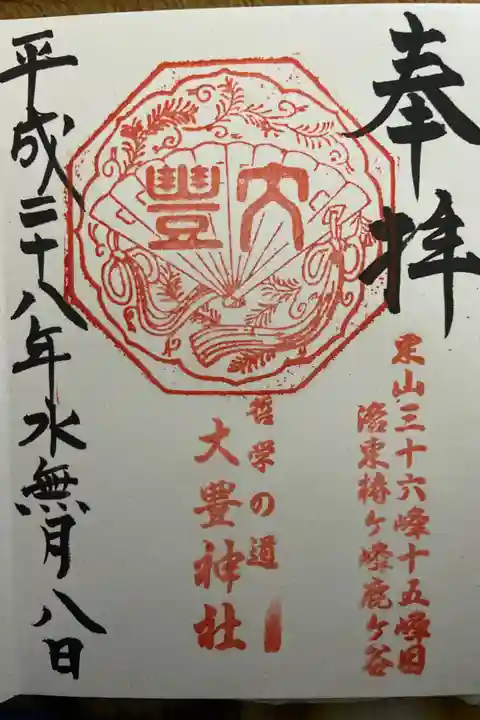 奉拝
東山三十六峰十五峰目
洛東椿ヶ峰鹿ヶ谷
大豊
哲学の道
大豊神社
平成二十八年水無月八日